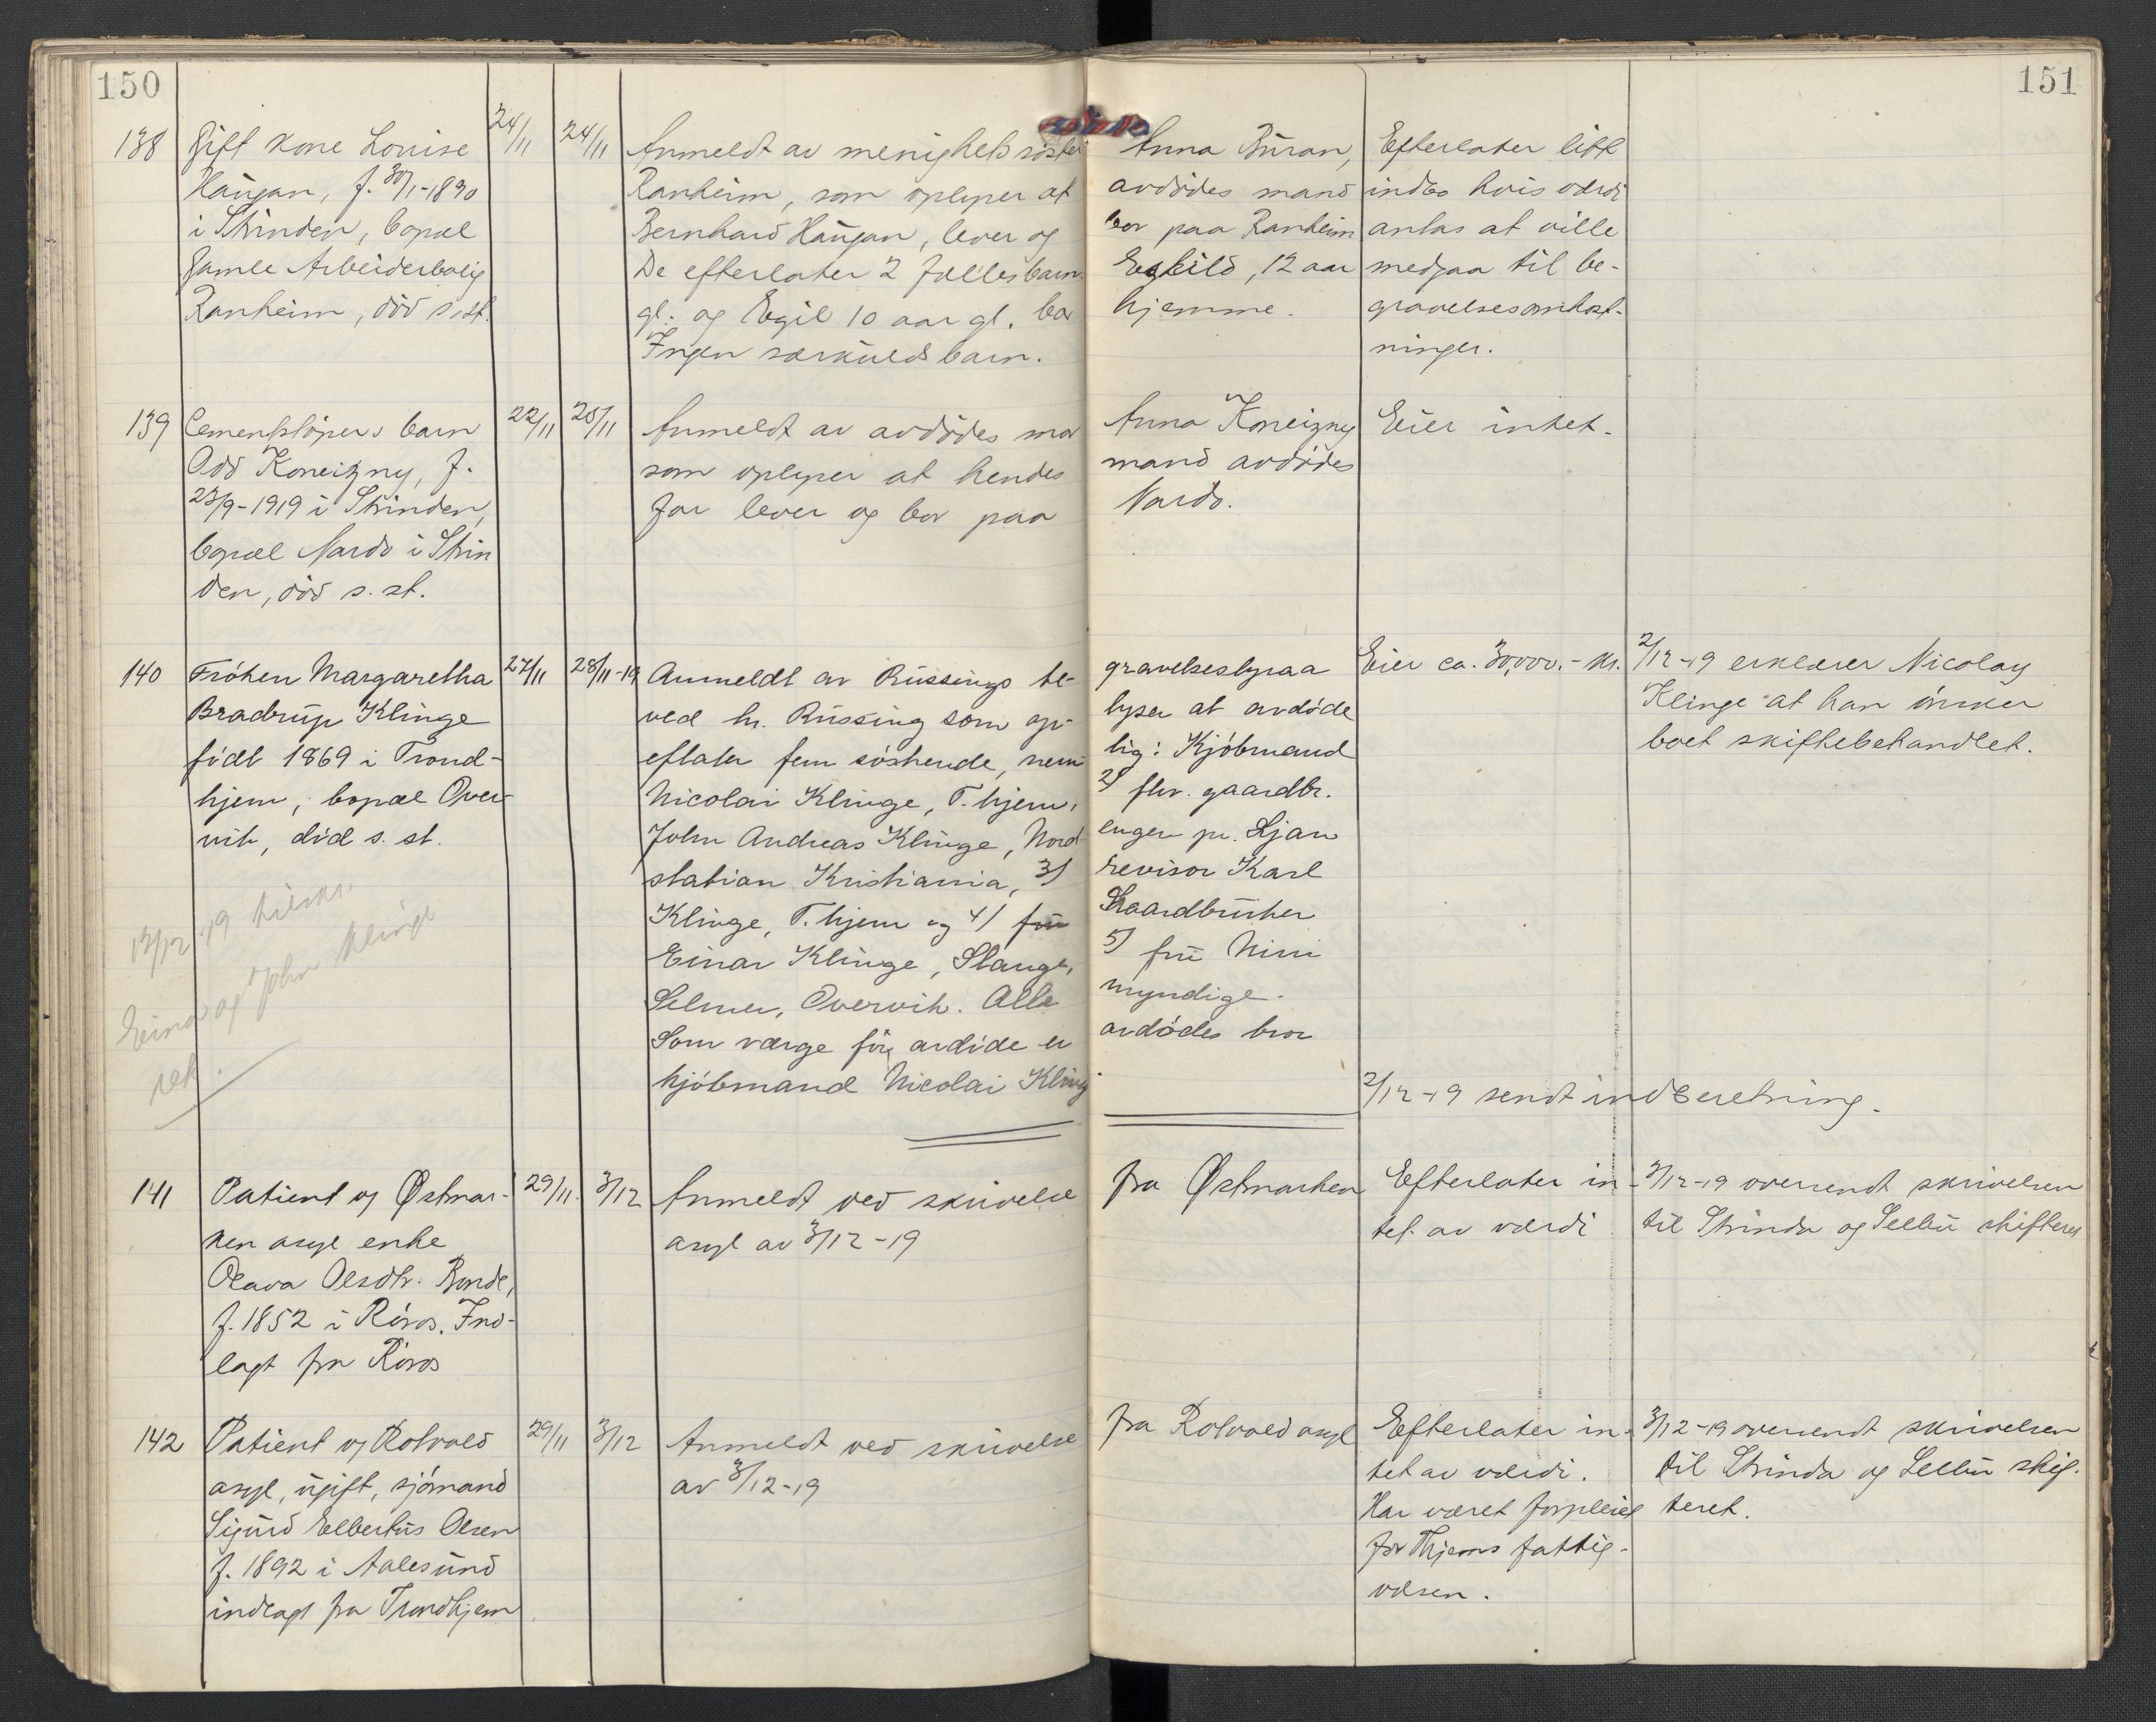 150
151
138 Gift kone Louise 24/11 24/11 Anmeldt av menighetssøster Anna Buran, Efterlater litt
Haugan, f. 30/1-1890 Ranheim, som oplyser at avdødes mand indbo hvis værdi
i Strinden, bopæl Bernhard Haugan, lever og bor paa Ranheim antas at ville
Gamle Arbeiderbolig De efterlater 2 fællesbarn. Eskild, 12 aar medgaa til be-
Ranheim, død s. st. gl. og Egil 10 aar gl. bor hjemme. gravelsesomkost-
Ingen særkuldsbarn. ninger.
139 Cementstøpers barn 22/11 25/11 Anmeldt av avdødes mor Anna Koneizny Eier intet.
Odd Koneizny, f. som oplyser at hendes mand avdødes
23/9-1919 i Strinden, far lever og bor paa Nardo.
bopæl Nardo i Strin
den, død s. st.
140 Frøken Margaretha 27/11 28/11-19 Anmeldt av Russings be- gravelsesbyraa Eier ca. 30,000.- kr. 2/12-19 erklærer Nicolay
Bradrup Klinge ved hr. Russing som op- lyser at avdøde Klinge at han ønsker
født 1869 i Trond- eflater fem søskende, nem lig: Kjøbmand boet skiftebehandlet.
hjem, bopæl Over- Nicolai Klinge, T.hjem, 2) fhv. gaardbr.
vik, død s. st. John Andreas Klinge, Nord engen pr. Ljan
station Kristiania, 3) revisor Karl
12/12-19
Klinge, T.hjem og 4) fru Gaardbruker
Einar og John Klinge
Einar Klinge, Stange, 5) fru Nini
Selmer, Overvik. Alle myndige.
Som værge for avdøde er avdødes bror
kjøbmand Nicolai Klinge
2/12-19 sendt indberetning.
141 Patient og Østmar- 29/11. 3/12 Anmeldt ved skrivelse fra Østmarken Efterlater in- 3/12-19 oversendt skrivelsen
ken asyl enke asyl av 3/12-19 tet av værdi til Strinda og Selbu skifteret
Olava Olsdtr. Bonde,
f. 1852 i Røros. Ind-
lagt fra Røros
142 Patient og Rotvold 29/11 3/12 Anmeldt ved skrivelse fra Rotvold asyl Efterlater in- 3/12-19 oversendt skrivelsen
asyl, ugift, sjømand av 3/12-19 tet av værdi. til Strinda og Selbu skif-
Sigurd Elbertus Olsen Har været forpleiet teret.
f. 1892 i Aalesund for Thjems fattig-
indlagt fra Trondhjem væsen.